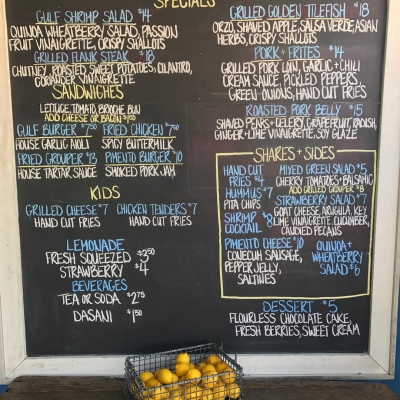 SPECIALS
GULF SHRIMP SALAD $14
QUINOA WHEATBERRY SALAD, PASSION
FRUIT VINAIGRETTE, CRISPY SHALLOTS
GRILLED FLANK STEAK $18
CHUTNEY, ROASTED SWEET POTATOES, CILANTRO,
CORIANDER VINAIGRETTE
SANDWICHES
LETTUCE, TOMATO, BRIOCHE BUN
ADD CHEESE OR BACON $1.00
GULF BURGER $7.50 FRIED CHICKEN $7.50
HOUSE GARLIC AIOLI SPICY BUTTERMILK
FRIED GROUPER $13 PIMENTO BURGER $10
HOUSE TARTAR SAUCE SMOKED PORK JAM
KIDS
GRILLED CHEESE $7 CHICKEN TENDERS $7
HAND CUT FRIES HAND CUT FRIES
LEMONADE
FRESH SQUEEZED $3.50
STRAWBERRY $4
BEVERAGES
TEA OR SODA $2.75
DASANI $1.50
GRILLED GOLDEN TILEFISH $18
ORZO, SHAVED APPLE, SALSA VERDE, ASIAN
HERBS, CRISPY SHALLOTS
PORK + FRITES $14
GRILLED PORK LOIN, GARLIC + CHILI
CREAM SAUCE, PICKLED PEPPERS,
GREEN ONIONS, HAND CUT FRIES
ROASTED PORK BELLY $15
SHAVED PEARS + CELERY, GRAPEFRUIT, RADISH,
GINGER + LIME VINAIGRETTE, SOY GLAZE
SHARES + SIDES
HAND CUT
FRIES $4
HUMMUS $7
PITA CHIPS
SHRIMP $8
COCKTAIL
PIMENTO CHEESE $10
CONECUH SAUSAGE,
PEPPER JELLY,
SALTINES
MIXED GREEN SALAD $5
CHERRY TOMATOES + BALSAMIC
ADD GRILLED GROUPER $8
STRAWBERRY SALAD $7
GOAT CHEESE, ARUGULA, KEY
LIME VINAIGRETTE, CUCUMBER,
CANDIED PECANS
QUINOA +
WHEATBERRY
SALAD $6
DESSERT $5
FLOURLESS CHOCOLATE CAKE,
FRESH BERRIES, SWEET CREAM